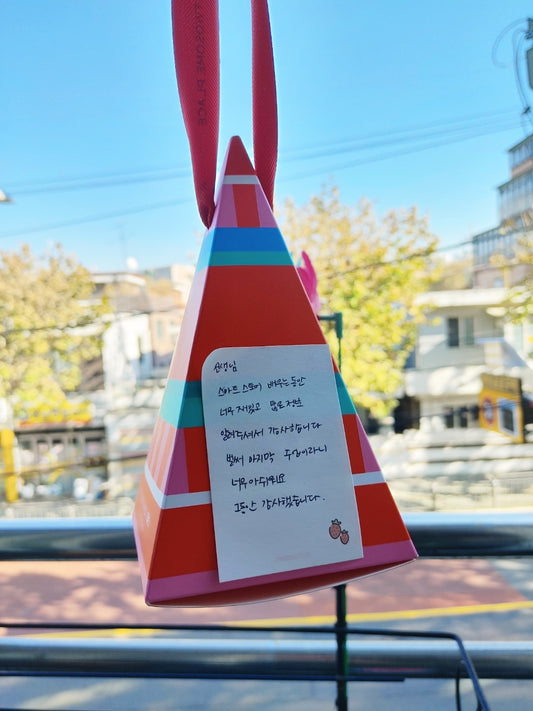 TWOSOME PLACE
선생님
스마트 스토어 배우는동안
너무 재밌고 많은 정보
알려주셔서 감사합니다
벌써 마지막 수업이라니
너무아쉬워요
그동안 감사했습니다.